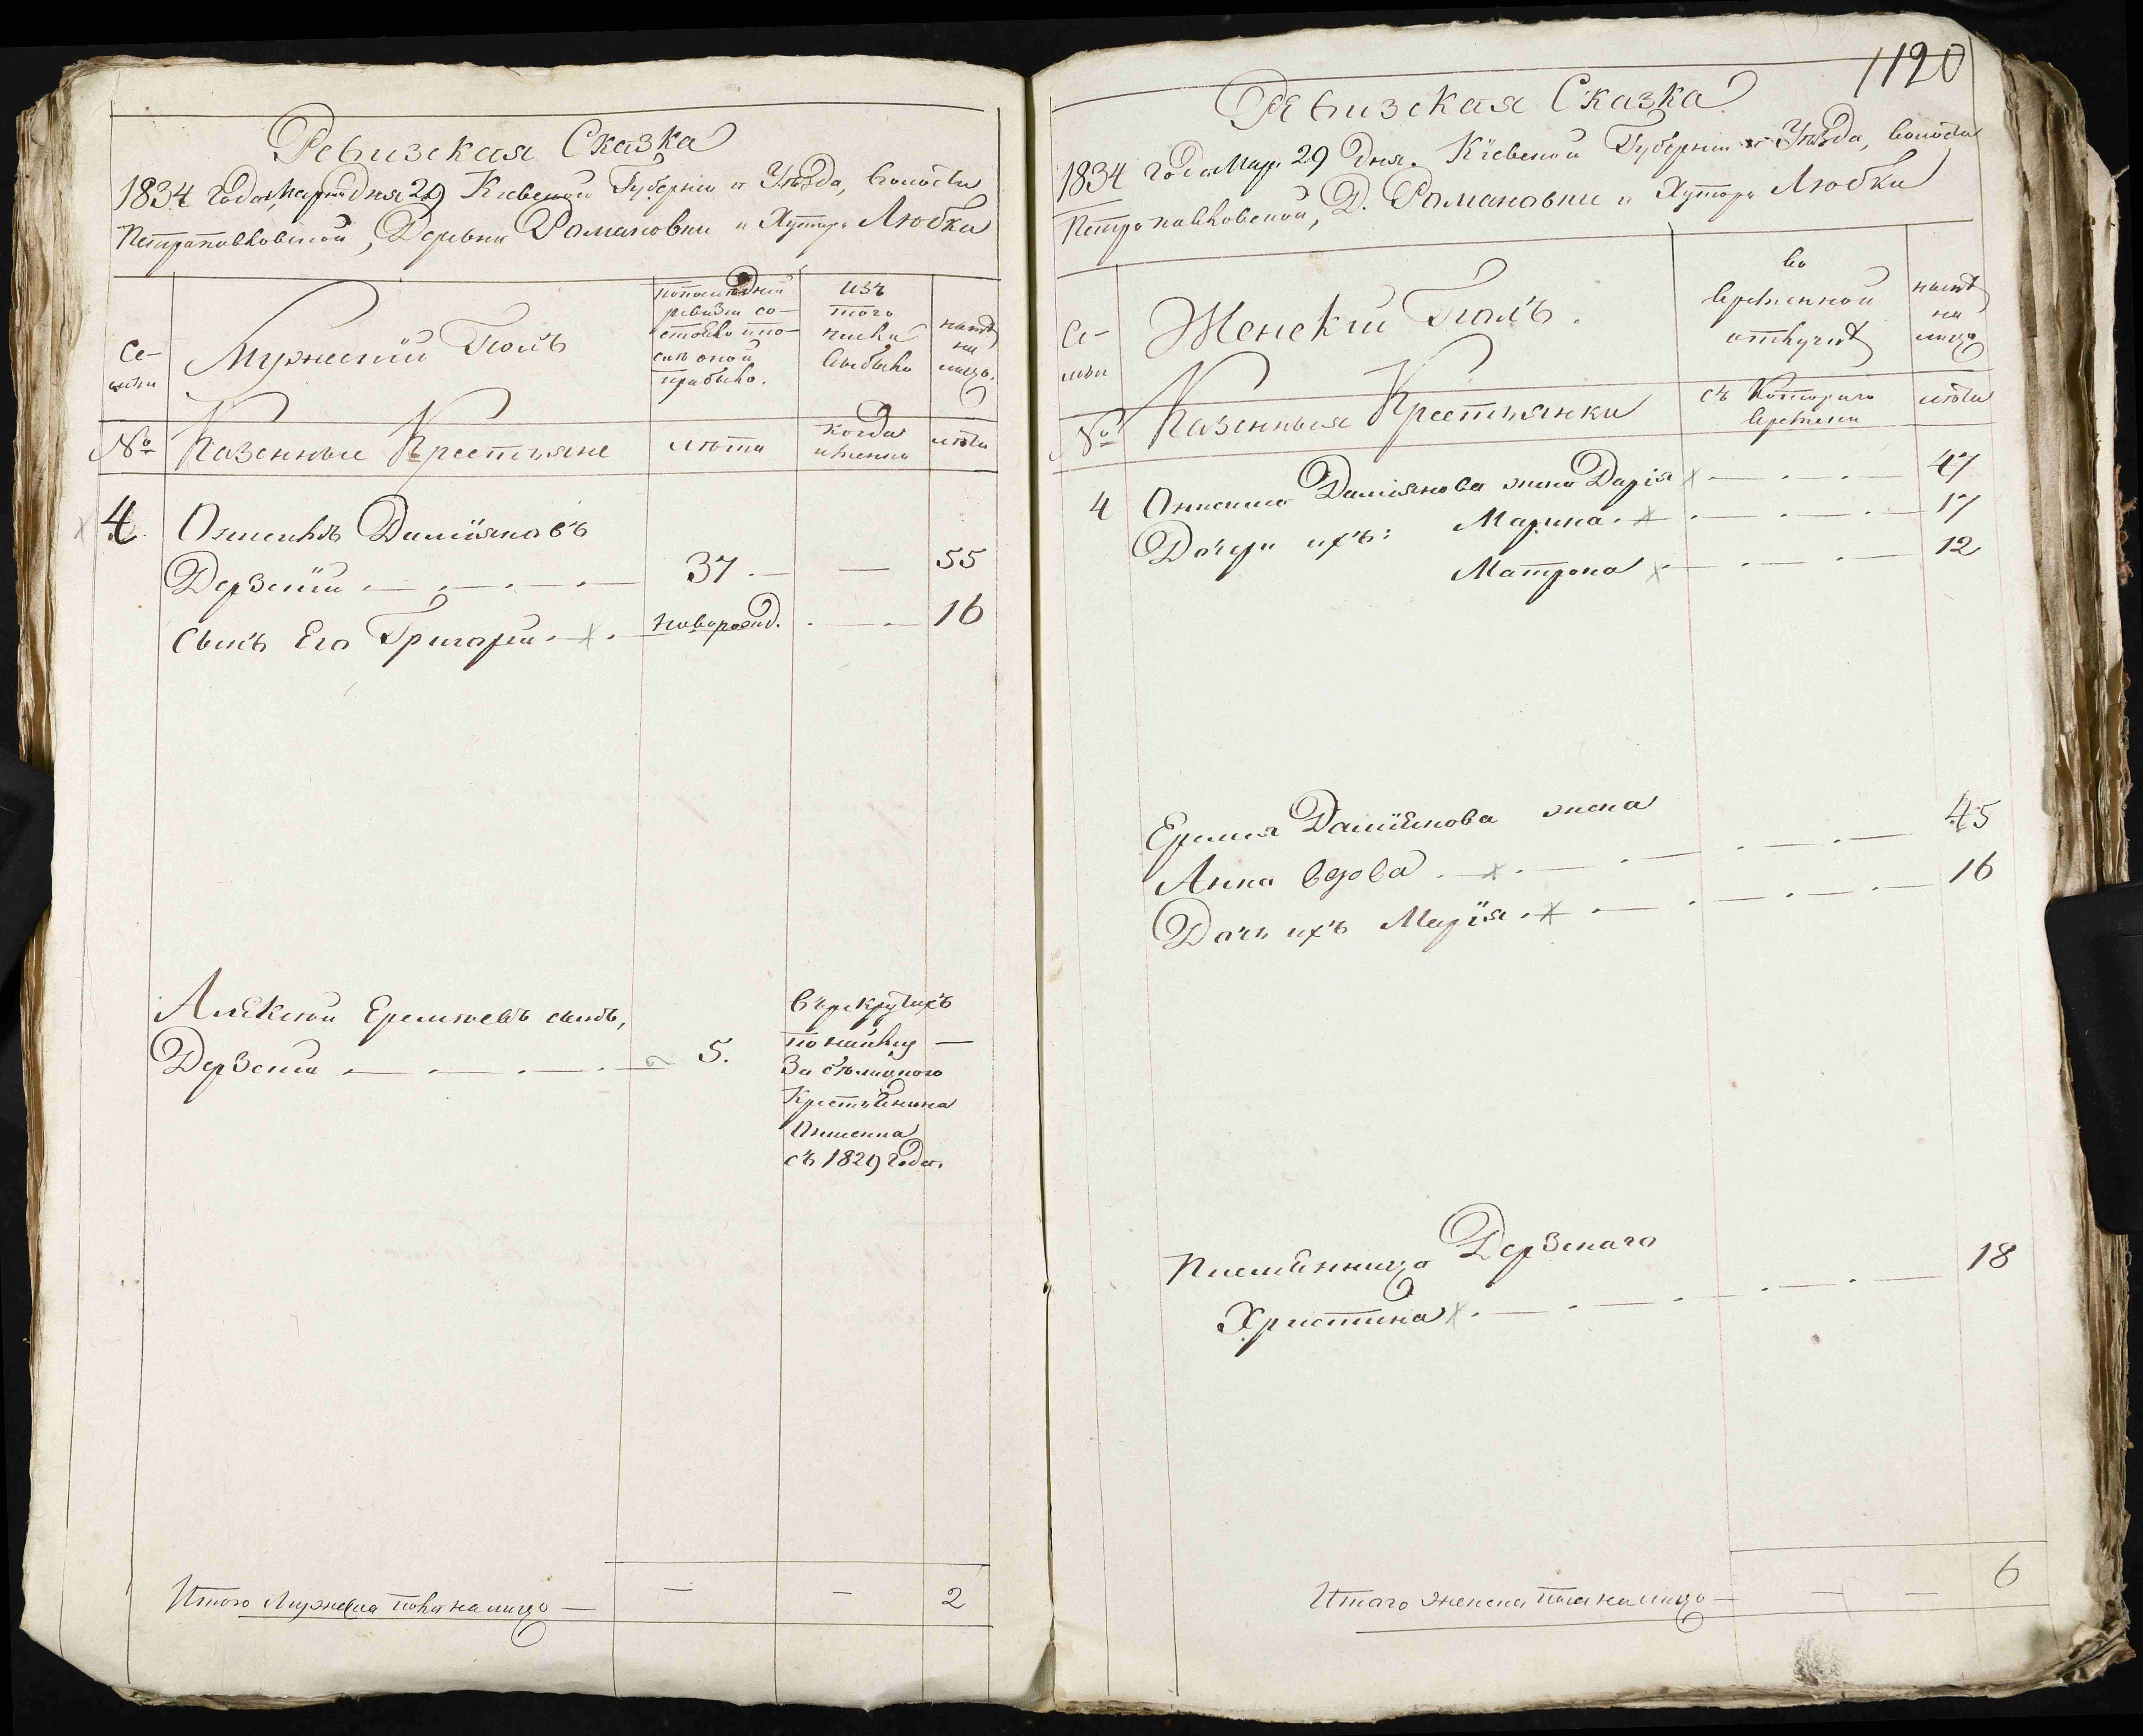 Ревизская Сказка
1834 Года Марта Дня 29 Киевской Губерніи и Уѣзда, волости
Петропавловской, Деревни Романовки и Хутора Любки
Се-
мьи
Мужескій Полъ
попослѣдней
ревизіи со-
стояло ипо-
слѣ оной
прибыло.
изъ
того
числа
выбыло
нынѣ
на
лицо.
№
Казенные Крестьяне
лѣта
когда
именно
лѣта
4
Онисимъ Даміяновъ
Дерзскій 37 55
Сынъ Его Григорій новорожд. 16
Алексѣй Ереміевъ сынъ,
Дерзскій 5.
въ рекрутахъ
по найму
За сѣмянного
Крестьянина
Онисима
съ 1829 Года.
Итого Мужеска пола налицо 2
1120
Ревизская Сказка
1834 Года Мар. 29 Дня. Кіевской Губерніи и Уѣзда, волости
Петропавловской, Д. Романовки и Хутора Любки
Се-
мьи
Женскій Полъ.
во
временной
отлучкѣ
нынѣ
на
лицо
№
Казенныя Крестьянки
съ Котораго
времени
лѣта
4 Онисима Даміянова жена Дарія 47
Дочери ихъ: Марина 17
Матрона 12
Еремія Даміянова жена
Анна вдова 45
Дочь ихъ Марія 16
Племянница Дерзскаго
Христина 18
Итого женска пола налицо 6